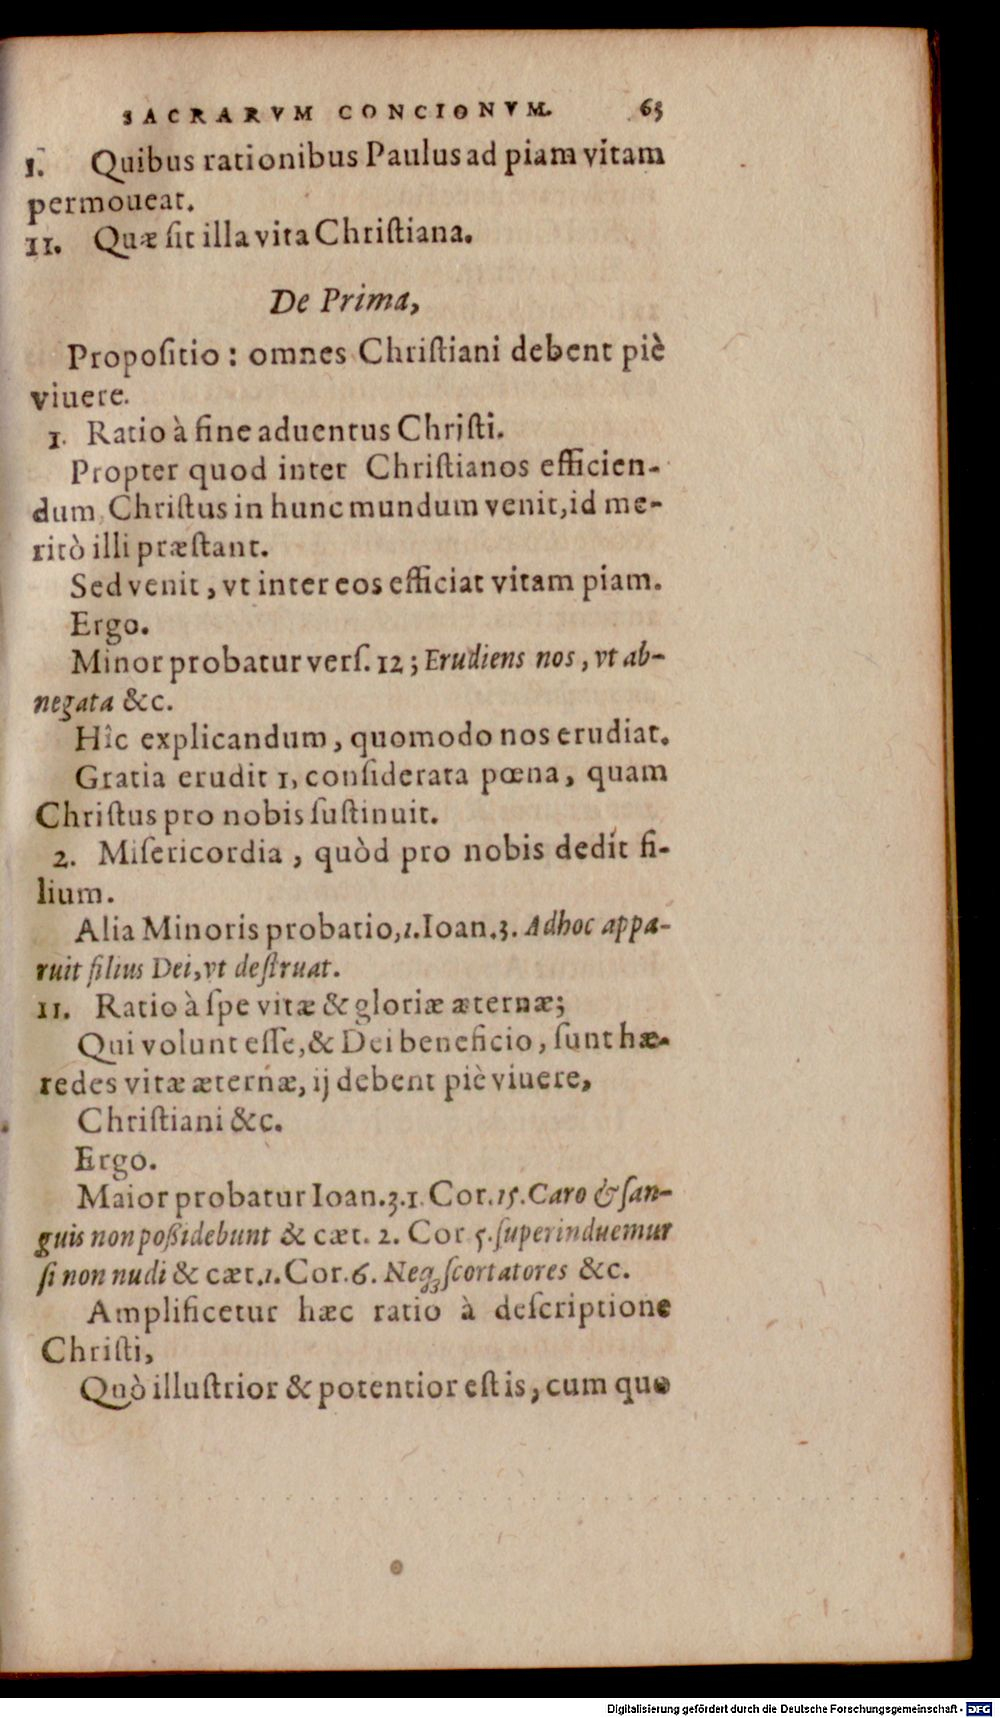 SACRARVM CONCIONVM. 65
I. Quibus rationibus Paulus ad piam vitam
permoueat.
II. Quæ ſit illa vita Chriſtiana.
De Prima,
Propoſitio : omnes Chriſtiani debent piè
viuere.
1. Ratio à fine aduentus Chriſti.
Propter quod inter Chriſtianos efficien-
dum Chriſtus in hunc mundum venit, id me-
ritò illi præſtant.
Sed venit, vt inter eos efficiat vitam piam.
Ergo.
Minor probatur verſ. 12; Erudiens nos, vt ab-
negata &c.
Hîc explicandum, quomodo nos erudiat.
Gratia erudit 1, conſiderata pœna, quam
Chriſtus pro nobis ſuſtinuit.
2. Miſericordia, quòd pro nobis dedit fi-
lium.
Alia Minoris probatio, 1. Ioan. 3. Ad hoc appa-
ruit filius Dei, vt deſtruat.
II. Ratio à ſpe vitæ & gloriæ æternæ;
Qui volunt eſſe, & Dei beneficio, ſunt hæ-
redes vitæ æternæ, ij debent piè viuere,
Chriſtiani &c.
Ergo.
Maior probatur Ioan. 3. 1. Cor. 15. Caro & ſan-
guis non poßidebunt & cæt. 2. Cor 5. ſuperinduemur
ſi non nudi & cæt. 1. Cor. 6. Neqꝫ ſcortatores &c.
Amplificetur hæc ratio à deſcriptione
Chriſti,
Quò illuſtrior & potentior eſt is, cum quo
Digitalisierung gefördert durch die Deutsche Forschungsgemeinschaft - DFG